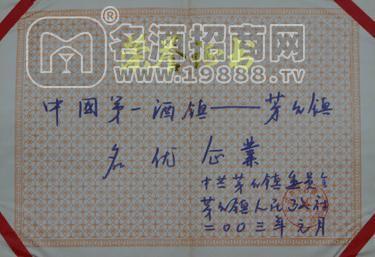 名酒招商网
www.19888.tv
中国第一酒镇——茅台镇
名优企业
中共茅台镇委员会
茅台镇人民政府
二〇〇三年元月